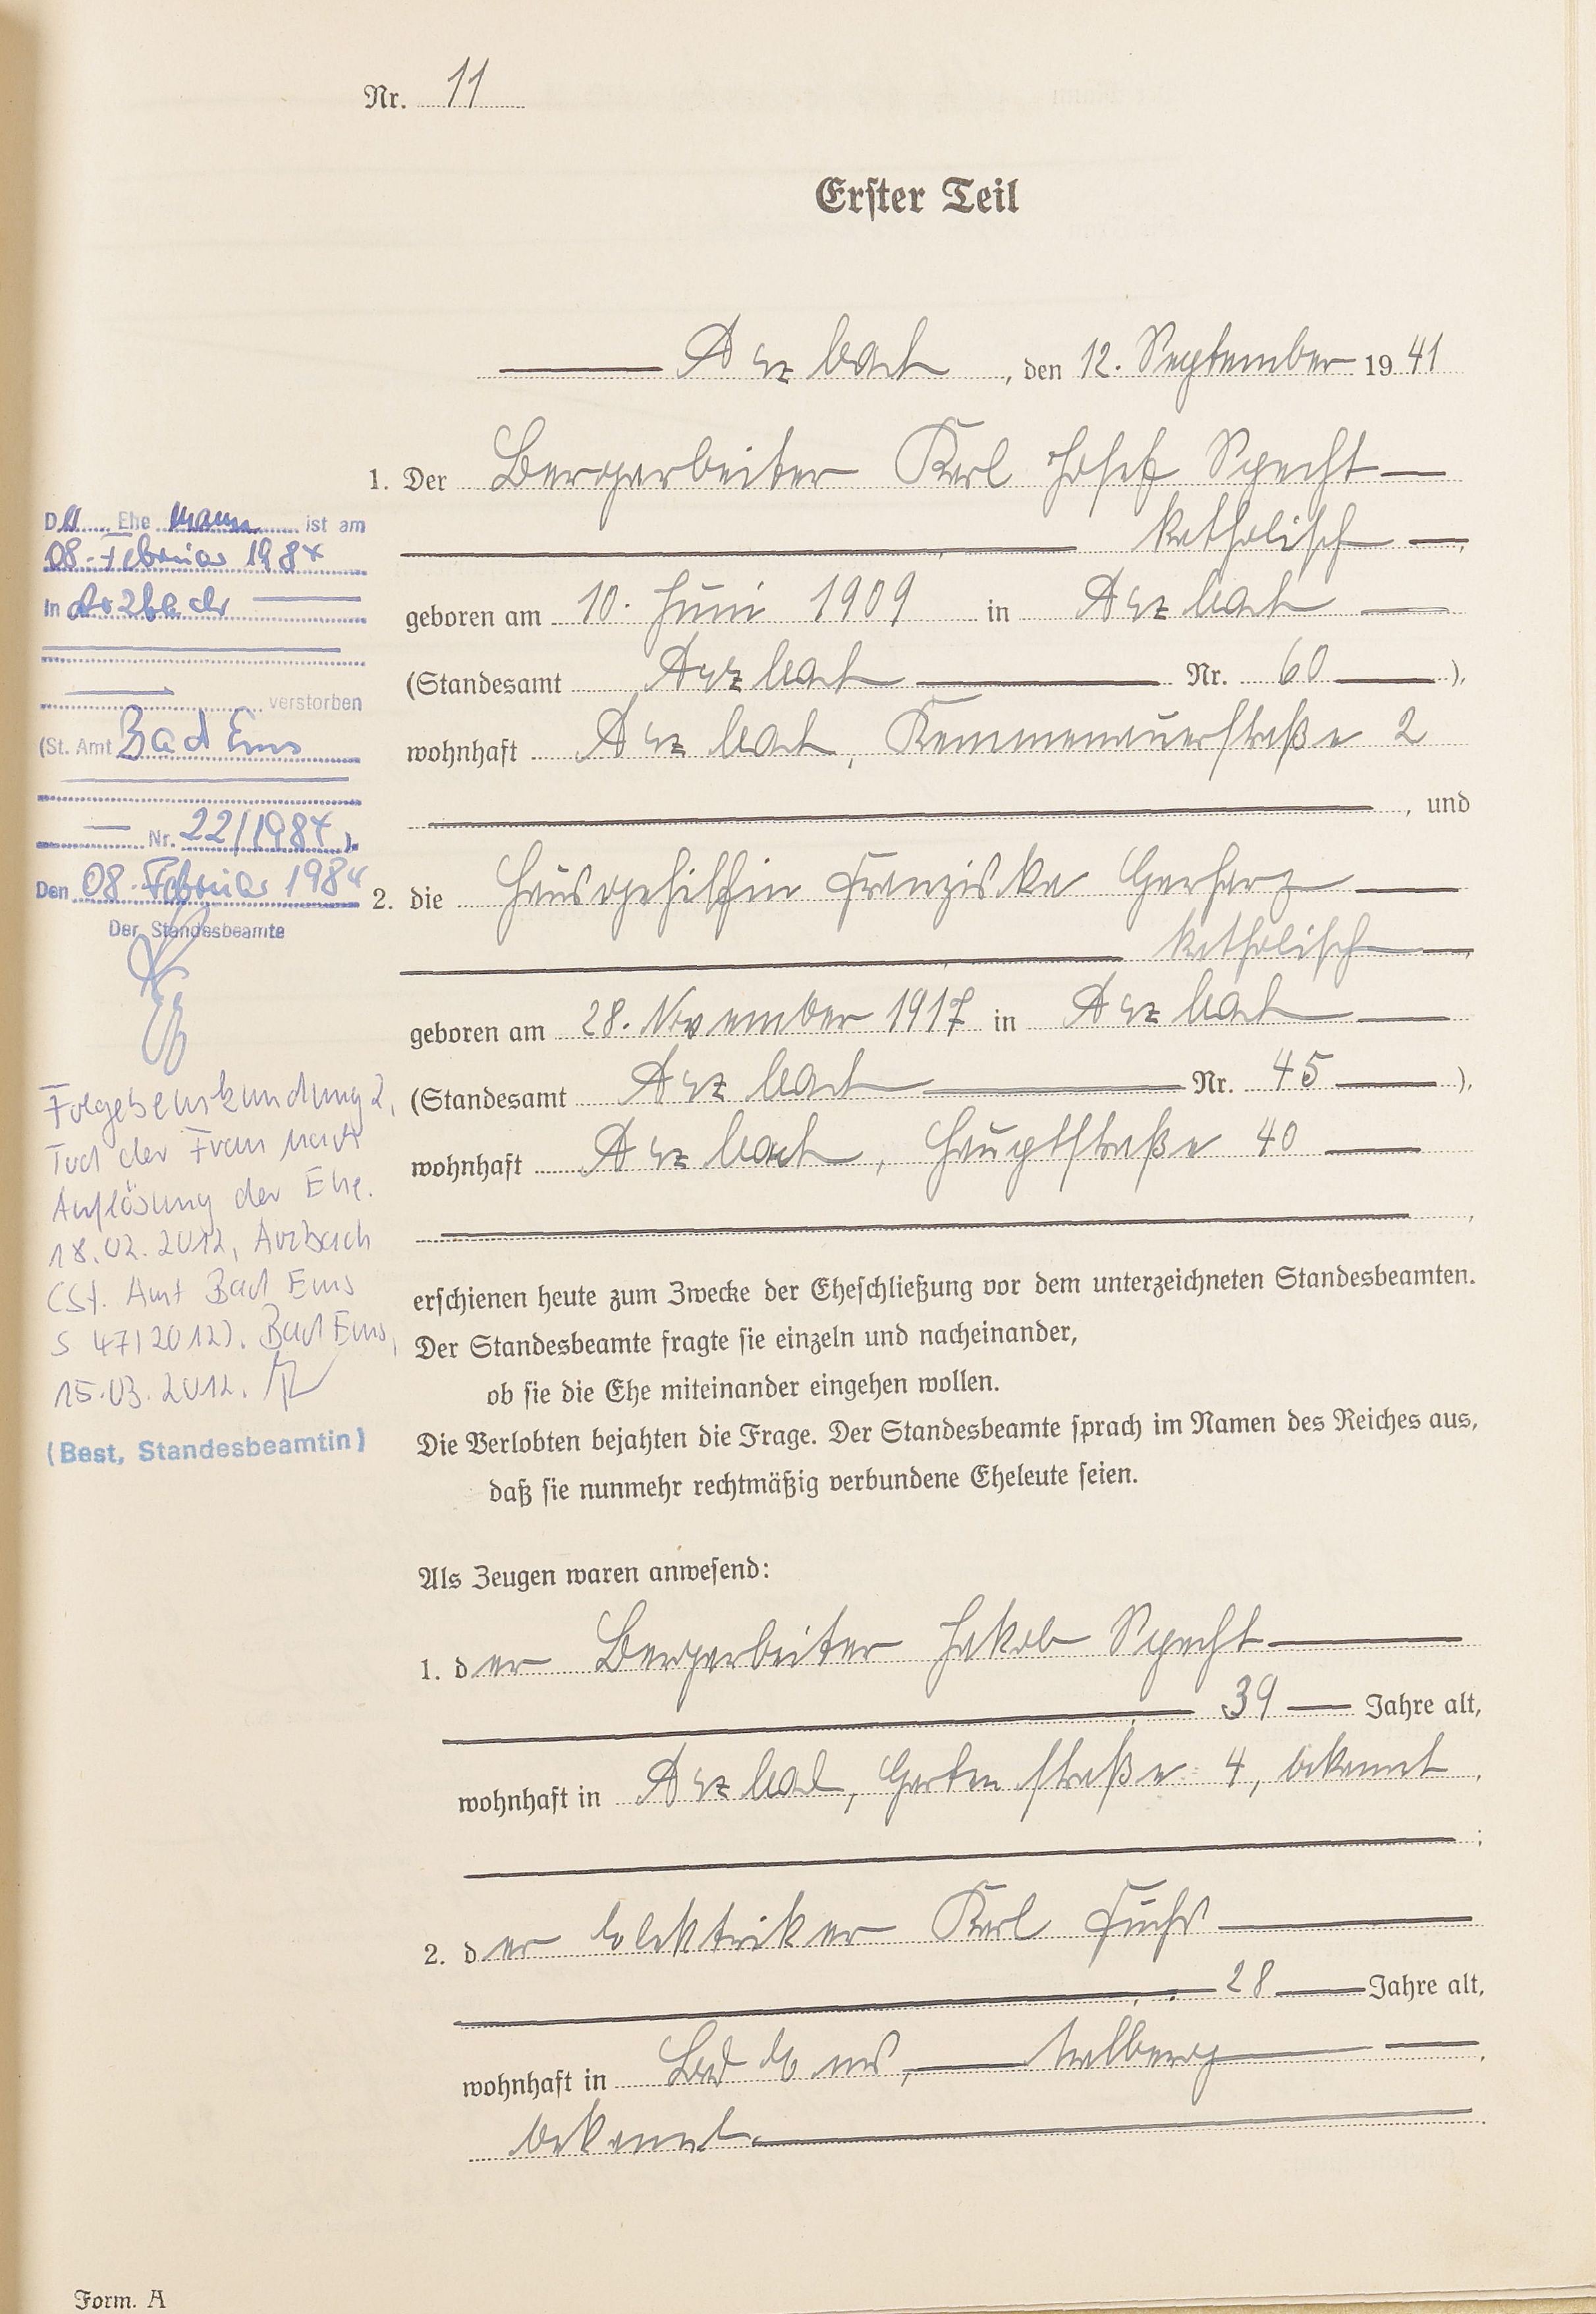 Nr. 11
Erster Teil
Arzbach, den 12. September 1941
1. Der Bergarbeiter Karl Josef Specht
katholisch,
geboren am 10. Juni 1909 in Arzbach
(Standesamt Arzbach Nr. 60),
wohnhaft Arzbach, Kemmenauerstraße 2
, und
2. die Hausgehilfin Franziska Gerharz
katholisch,
geboren am 28. November 1917 in Arzbach
(Standesamt Arzbach Nr. 45),
wohnhaft Arzbach, Hauptstraße 40
,
erschienen heute zum Zwecke der Eheschließung vor dem unterzeichneten Standesbeamten.
Der Standesbeamte fragte sie einzeln und nacheinander,
ob sie die Ehe miteinander eingehen wollen.
Die Verlobten bejahten die Frage. Der Standesbeamte sprach im Namen des Reiches aus,
daß sie nunmehr rechtmäßig verbundene Eheleute seien.
Als Zeugen waren anwesend:
1. der Bergarbeiter Jakob Specht
39 Jahre alt,
wohnhaft in Arzbach, Gartenstraße 4, bekannt,
;
2. der Elektriker Karl Fuchs
28 Jahre alt,
wohnhaft in Bad Ems,
bekannt.
Der Ehemann ist am
08. Februar 1984
in Arzbach
verstorben
(St. Amt Bad Ems
Nr. 22/1984).
Den 08. Februar 1984
Der Standesbeamte
Folgebeurkundung 2,
Tod der Frau nach
Auflösung der Ehe.
18.02.2012, Arzbach
(St. Amt Bad Ems
S 47/2012). Bad Ems,
15.03.2012.
(Best, Standesbeamtin)
Form. A